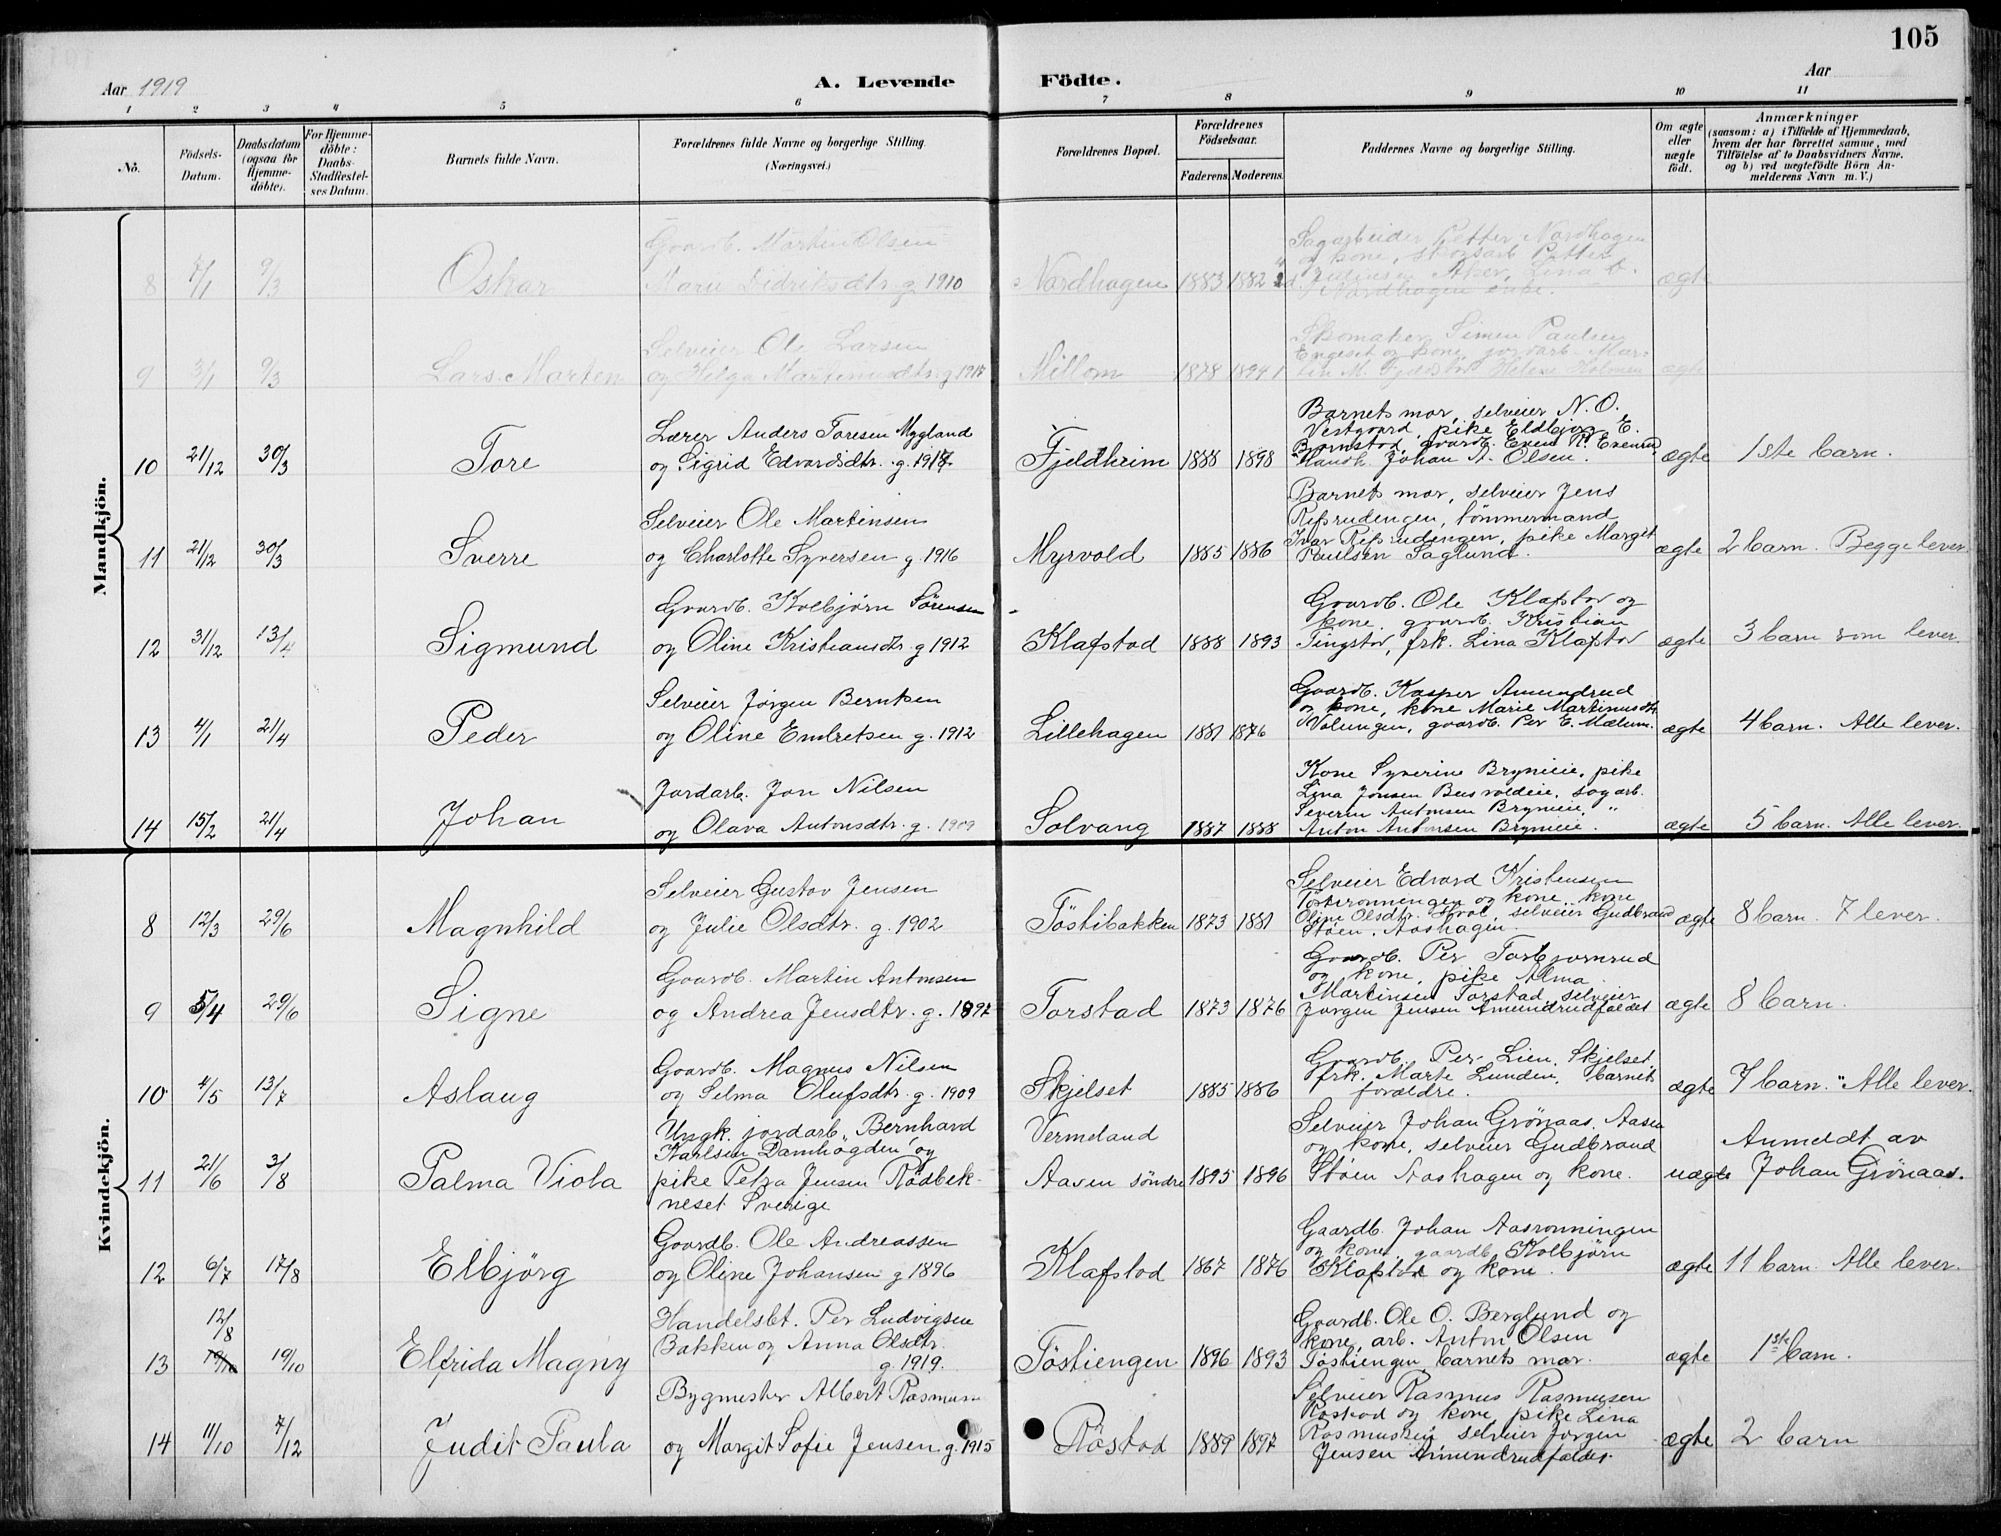 105
Aar 1919
A. Levende
Födte.
Aar
1 2 3 4 5 6 7 8 9 10 11
No.
Födsels-
Datum.
Daabsdatum
(ogsaa for
Hjemme-
döbte).
For Hjemme-
döbte:
Daabs-
Stadfæstel-
ses Datum.
Barnets fulde Navn.
Forældrenes fulde Navne og borgerlige Stilling.
(Næringsvei.)
Forældrenes Bopæl.
Forældrenes
Födselsaar.
Faderens. Moderens.
Faddernes Navne og borgerlige Stilling.
Om ægte
eller
uægte
födt.
Anmærkninger
(saasom: a) i Tilfælde af Hjemmedaab,
hvem der har forrettet samme, med
Tilföielse af to Daabsvidners Navne,
og b) ved uægtefödte Börn An-
melderens Navn m. V.)
Mandkjön.
8 7/1 9/3 Oskar
Gaardb. Martin Olsen
Marie Didriksdtr. g. 1910
Nordhagen 1883 1882
Sagarbeider Petter Nordhagen
og kone, skogsarb. Petter
Aker, Lina
Nordhagen enke.
ægte
9 3/1 9/3 Lars Marten
Selveier Ole Larsen
og Helga Martinusdtr. g. 1917
Millom 1878 1894
Skomaker Simen Paulsen
Engeset og kone, jordarb. Mar-
tin M. Fjeldstad Helene Holmen
ægte
10 21/12 30/3 Tore
Lærer Anders Toresen Mygland
og Sigrid Edvardsdtr. g. 1917
Fjeldheim 1888 1898
Barnets mor, selveier N. O.
Vestgaard, pike Eldbjørg E.
Bjørnstad, gaardb. Even K. Evenrud
Handh. Johan A. Olsen.
ægte 1ste barn.
11 21/12 30/3 Sverre
Selveier Ole Martinsen
og Charlotte Syversen g. 1916
Myrvold 1885 1886
Barnets mor, selveier Jens
Refsrudengen, tømmermand
Ivar Refsrudengen, pike Margit
Paulsen Saglund.
ægte 2 barn. Begge lever.
12 31/12 13/4 Sigmund
Gaardb. Kolbjørn Sørensen
og Oline Kristiansdtr. g. 1912
Klafstad 1888 1893
Gaardb. Ole Klafstad og
kone, gaardb. Kristian
Tingstad, frk. Lina Klafstad
ægte 3 barn som lever.
13 4/1 21/4 Peder
Selveier Jørgen Berntsen
og Oline Embretsen g. 1912
Lillehagen 1881 1876
Gaardb. Kasper Amundrud
og kone, kone Marie Martinusdtr.
Volungen, gaardb. Per E. Mælum.
ægte 4 barn. Alle lever.
14 15/2 21/4 Johan
Jordarb. Jon Nilsen
og Olava Antonsdtr. g. 1909
Solvang 1887 1888
Kone Syverine Bryneie, pike
Lina Jonsen Busvoldeie, sagarb.
Severin Antonsen Bryneie, "
Anton Antonsen Bryneie.
ægte 5 barn. Alle lever.
Kvindekjön.
8 12/3 29/6 Magnhild
Selveier Gustav Jensen
og Julie Olsdtr. g. 1902
Töstibakken 1873 1881
Selveier Edvard Kristensen
Töstirønningen og kone, kone
Oline Olsdtr. selveier Gudbrand
Støen, Aashagen.
ægte 8 barn. 7 lever.
9 5/4 29/6 Signe
Gaardb. Martin Antonsen
og Andrea Jensdtr. g. 1897
Torstad 1873 1876
Gaardb. Per Torbjørnrud
og kone, pike Alma
Martinsen Torstad, selveier
Jørgen Jensen Amundrudfaldet
ægte 8 barn.
10 4/5 13/7 Aslaug
Gaardb. Magnus Nilsen
og Selma Olufsdtr. g. 1909
Skjelset 1885 1886
Gaardb. Per Lien, Skjelset,
frk. Marte Lunden, barnets
forældre.
ægte 7 barn. Alle lever.
11 21/6 3/8 Palma Viola
Ungk. jordarb. Bernhard
Karlsen Damhögden og
pike Petra Jensen Rödbek-
neset Sverige
Vermeland
Aasen søndre 1895 1896
Selveier Johan Grönaas, Aasen
og kone, selveier Gudbrand
Støen Aashagen og kone.
uægte
Anmeldt av
Johan Grönaas.
12 6/7 17/8 Elbjörg
Gaardb. Ole Andreassen
og Oline Johansen g. 1896
Klafstad 1867 1876
Gaardb. Johan Aasrønningen
og kone, gaardb. Kolbjörn
Klafstad og kone.
ægte 11 barn. Alle lever.
12/8
13 19/10 19/10 Elfrida Magny
Handelsbt. Per Ludvigsen
Bakken og Anna Olsdtr.
g. 1919.
Töstiengen 1896 1893
Gaardb. Ole O. Berglund og
kone, arb. Anton Olsen
Töstiengen, barnets mor.
ægte 1ste barn.
14 11/10 7/12 Judit Paula
Bygmester Albert Rasmusen
og Margit Sofie Jensen g. 1915
Röstad 1889 1897
Selveier Rasmus Rasmusen
Røstad og kone, pike Lina
Rasmusen, selveier Jørgen
Jensen Amundrudfaldet.
ægte 2 barn